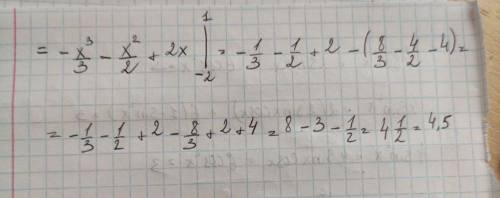 = -x³/3 - x²/2 + 2x |₋₂¹ = -1/3 - 1/2 + 2 - (8/3 - 4/2 - 4) =
= -1/3 - 1/2 + 2 - 8/3 + 2 + 4 = 8 - 3 - 1/2 = 4 1/2 = 4,5